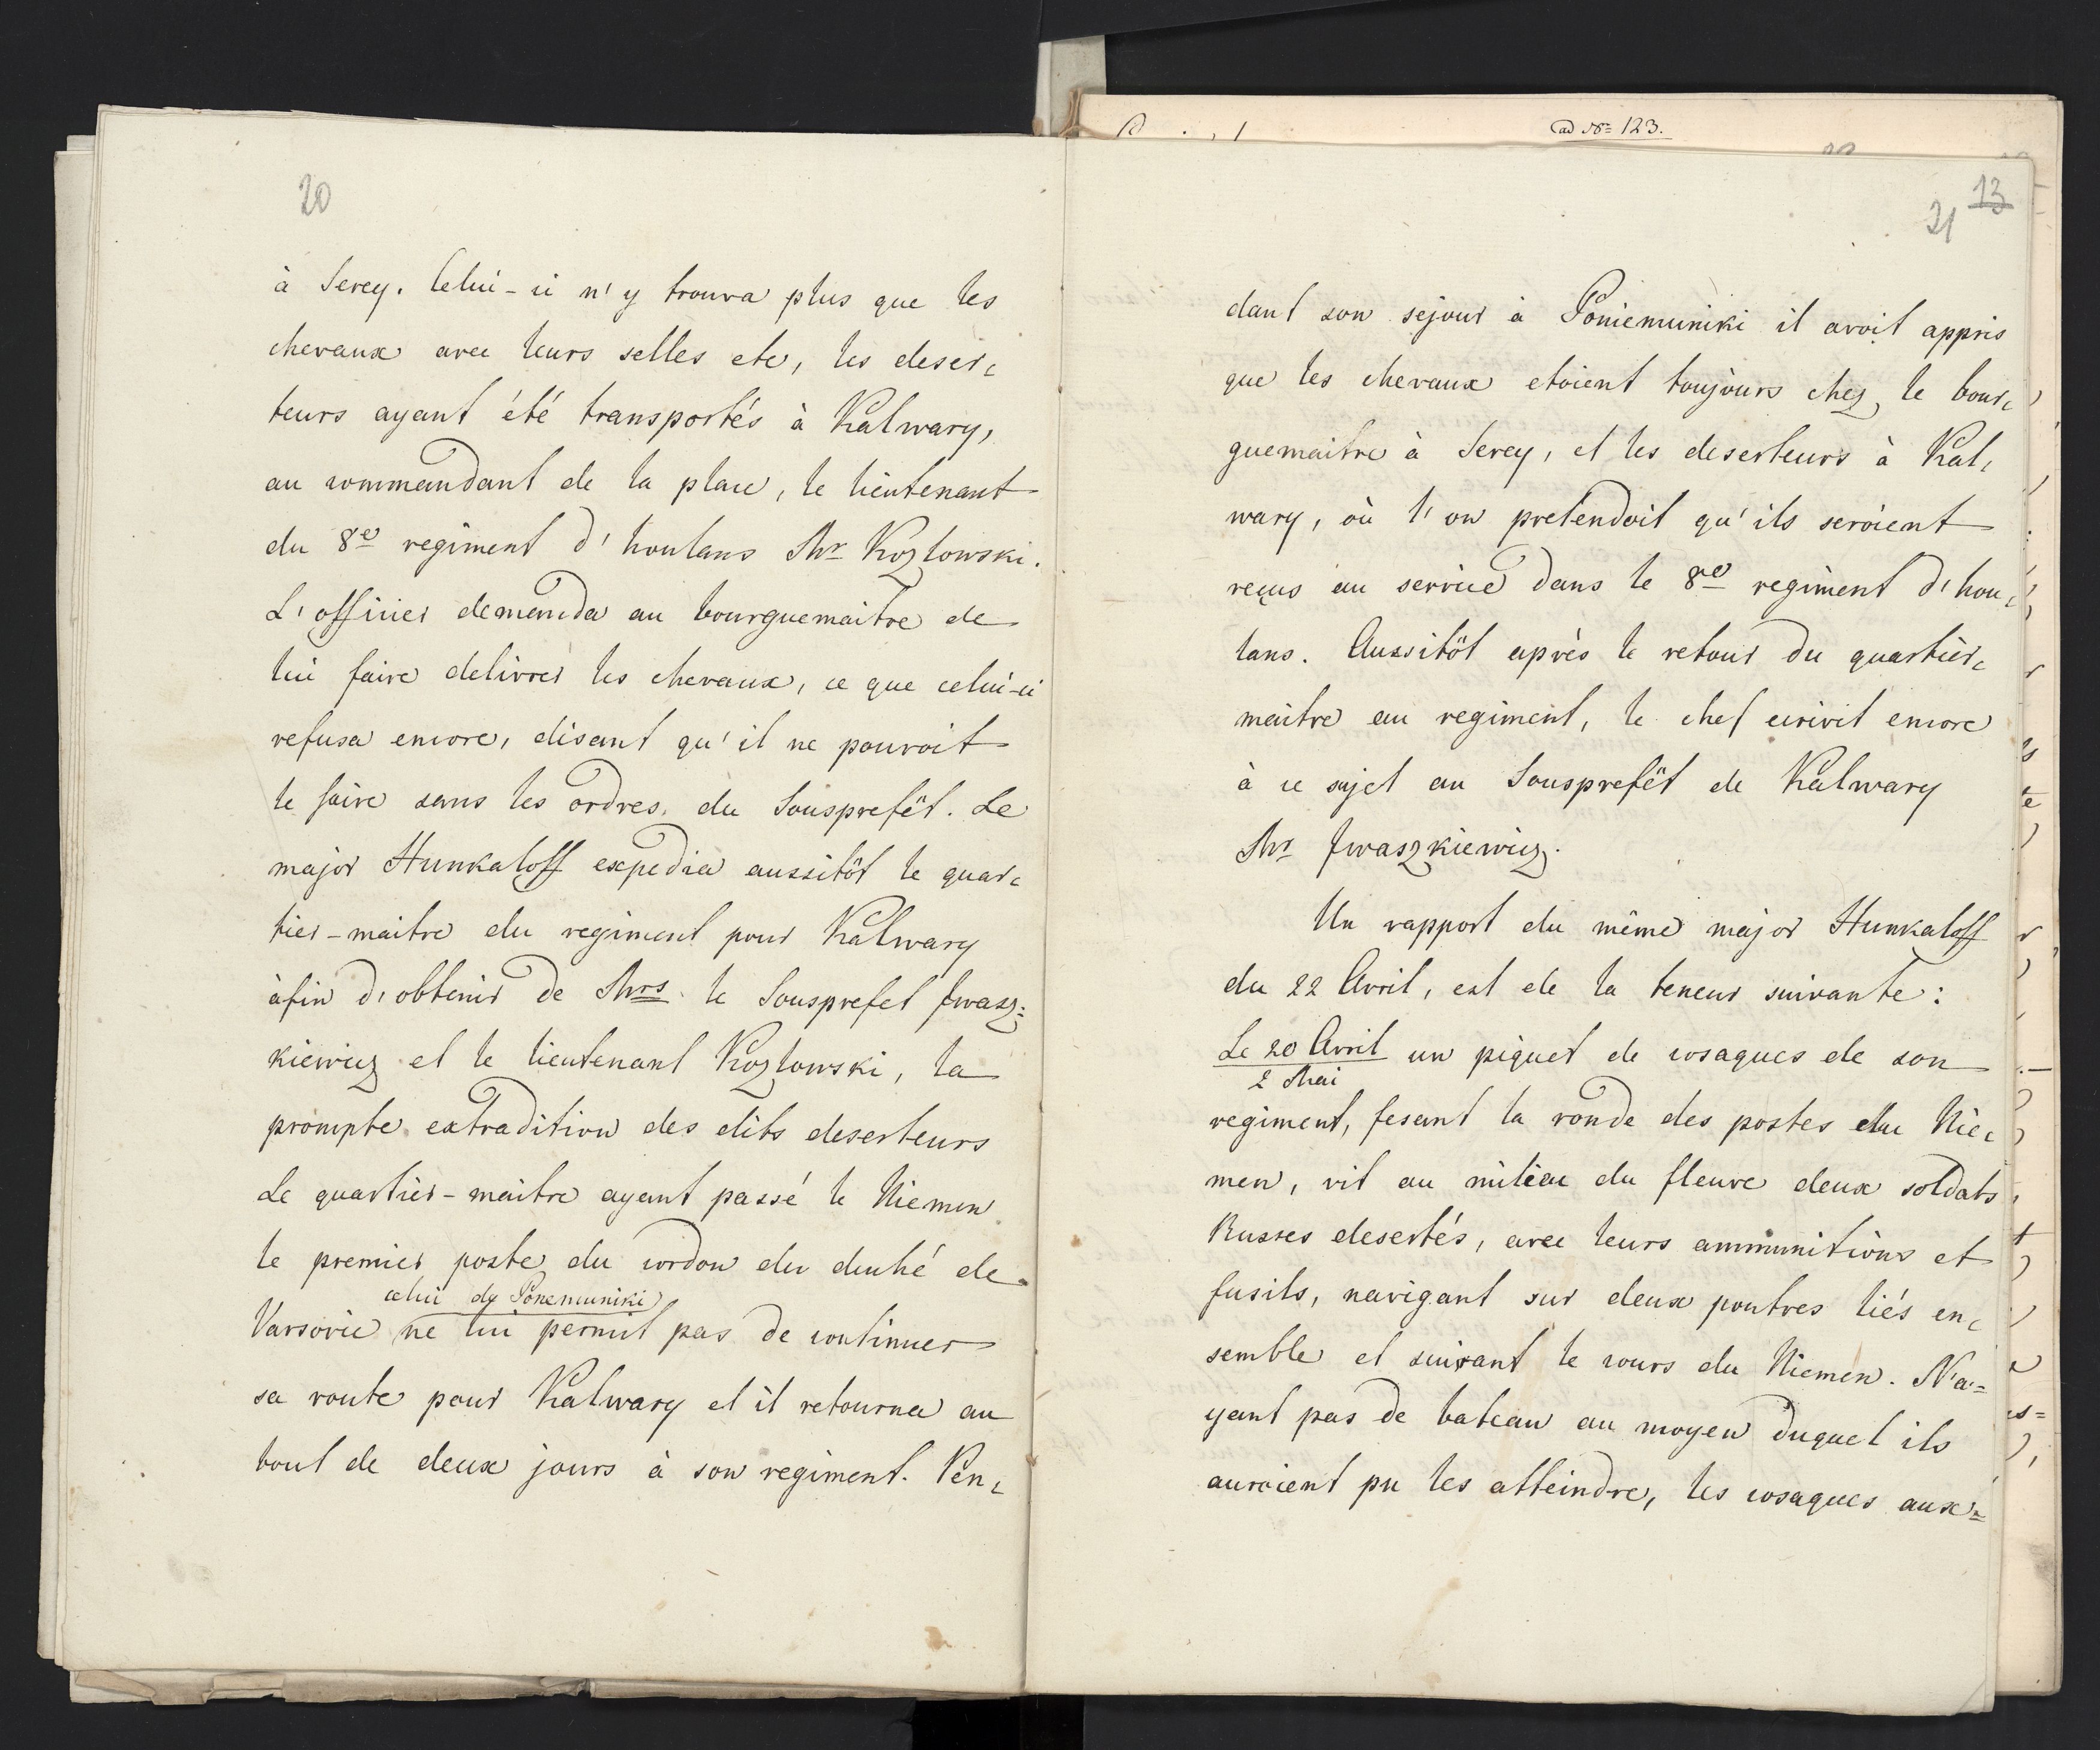 20
à Serey. Celui-ci n'y trouva plus que les
chevaux avec leurs selles etc, les deser-
teurs ayant été transportés à Kalwary,
au commandant de la place, le lieutenant
du 8e regiment d'houlans Mr Kozlowski.
L'officier demanda au bourguemaitre de
lui faire delivrer les chevaux, ce que celui-ci
refusa encore, disant qu'il ne pouvoit
le faire sans les ordres du Sousprefêt. Le
major Hunkaloff expedia aussitôt le quar-
tier-maitre du regiment pour Kalwary
àfin d'obtenir de Mrs le Sousprefet Jwasz=
kiewicz et le lieutenant Kozlowski, la
prompte extradition des dits deserteurs
Le quartier-maitre ayant passé le Niemen
le premier poste du cordon du duché de
celui de Ponemuniki
Varsovie ne lui permit pas de continuer
sa route pour Kalwary et il retourna au
bout de deux jours à son regiment. Pen-
ad No 123.
13
21
dant son sejour à Poniemuniki il avoit appris
que les chevaux etoient toujours chez le bour-
guemaitre à Serey, et les deserteurs à Kal-
wary, où l'on pretendoit qu'ils seroient
reçus au service dans le 8e regiment d'hou-
lans. Aussitôt après le retour du quartier-
maitre au regiment, le chef ecrivit encore
à ce sujet au Sousprefêt de Kalwary
Mr Jwaszkiewicz.
Un rapport du même major Hunkaloff
du 22 Avril, est de la teneur suivante:
Le 20 Avril un piquet de cosaques de son
2 Mai
regiment, fesant la ronde des postes du Nie-
men, vit au milieu du fleuve deux soldats
Russes desertés, avec leurs ammunitions et
fusils, navigant sur deux poutres liés en-
semble et suivant le cours du Niemen. N'a=
yant pas de bateau au moyen duquel ils
auroient pu les atteindre, les cosaques aux=